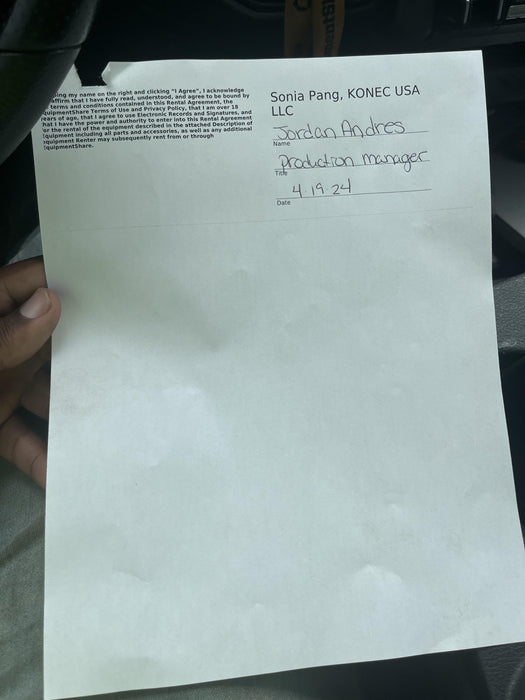 ing my name on the right and clicking "I Agree", I acknowledge
affirm that I have fully read, understood, and agree to be bound by
terms and conditions contained in this Rental Agreement, the
quipmentShare Terms of Use and Privacy Policy, that I am over 18
ears of age, that I agree to use Electronic Records and Signatures, and
hat I have the power and authority to enter into this Rental Agreement
or the rental of the equipment described in the attached Description of
Equipment including all parts and accessories, as well as any additional
equipment Renter may subsequently rent from or through
EquipmentShare.
Sonia Pang, KONEC USA
LLC
Jordan Andres
Name
production manager
Title
4.19.24
Date